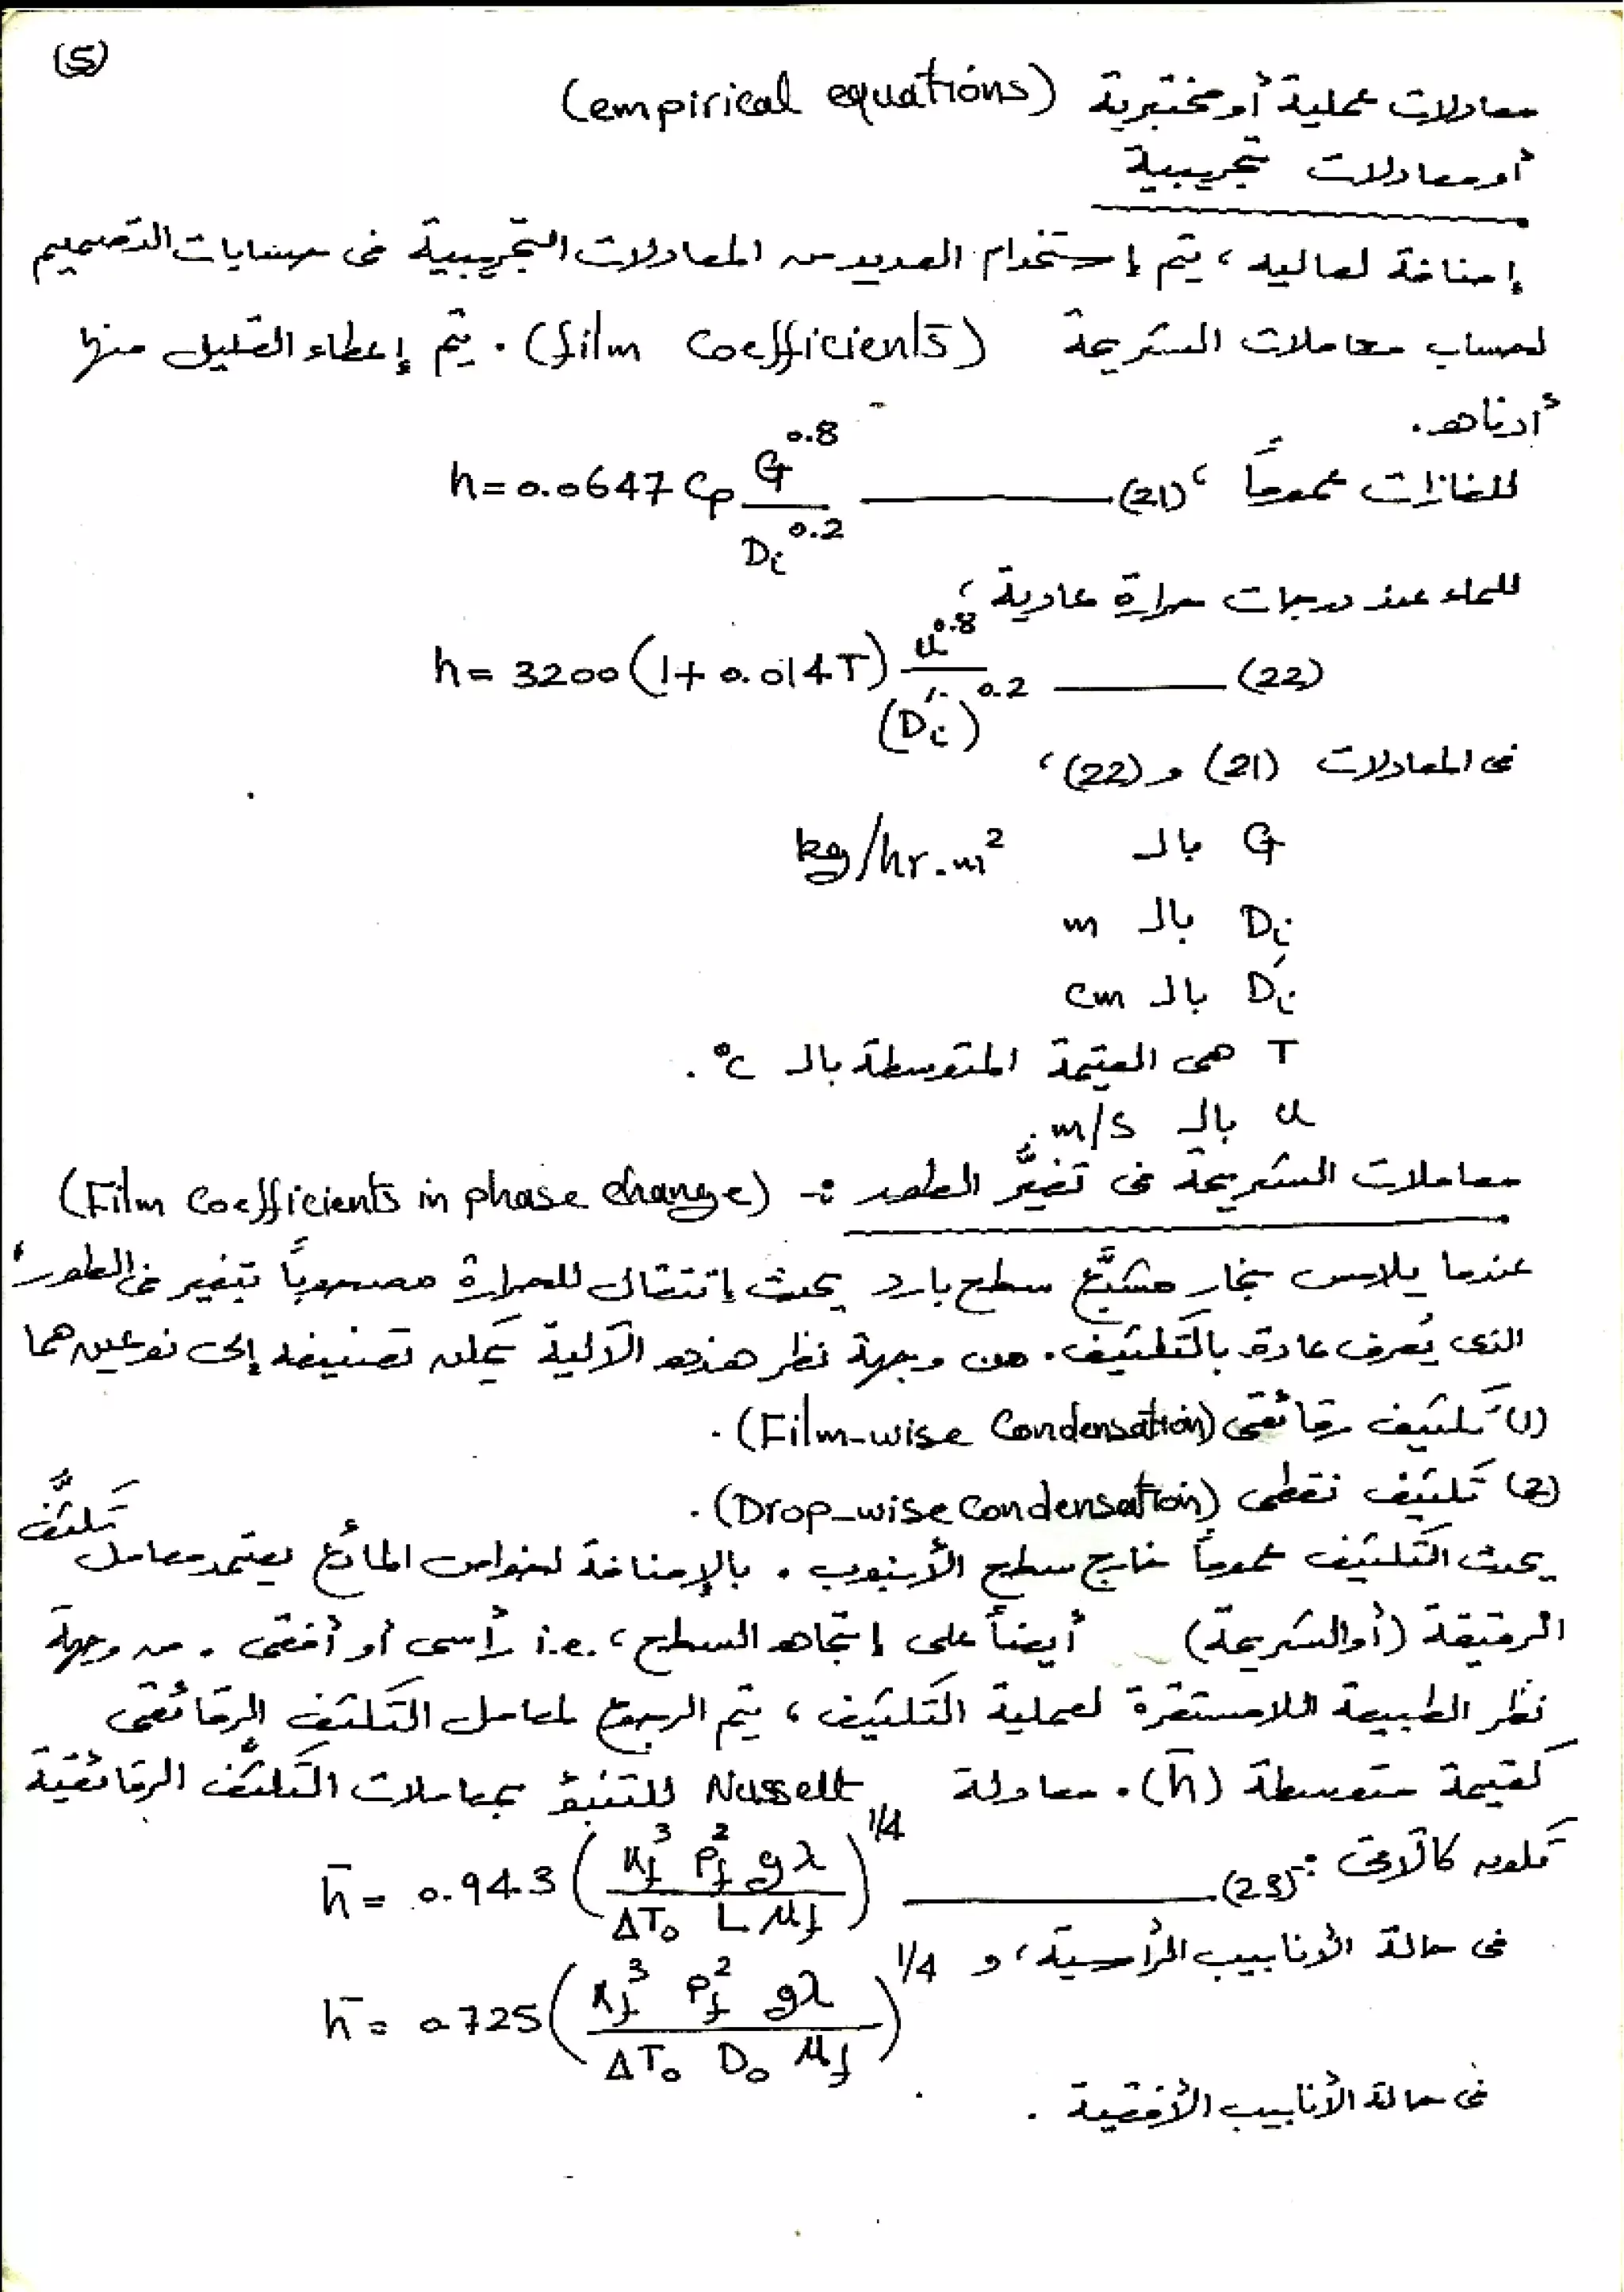 (5)
معادلات عملية أو مختبرية (empirical equations)
أو معادلات تجريبية
إضافة لعاليه، يتم إستخدام العديد من المعادلات التجريبية فى حسابات التصميم
لحساب معاملات الشريحة (film coefficients). يتم إعطاء القليل منها
أدناه.
للغازات عموماً، h = 0.0647 Cp G^0.8 / Di^0.2 (21)
للماء عند درجات حرارة عادية،
h = 3200 (1 + 0.014T) u^0.8 / (D'i)^0.2 (22)
فى المعادلات (21) و (22)،
G بالـ kg/hr.m²
Di بالـ m
D'i بالـ cm
T هى القيمة المتوسطة بالـ °c.
u بالـ m/s.
معاملات الشريحة فى تغيُّر الطور :- (Film coefficients in phase change)
عندما يلامس بخار مشبَّع سطح بارد يحدث إنتقال للحرارة مصحوباً بتغير فى الطور،
الذى يُعرف عادة بالتكثيف. من وجهة نظر هذه الآلية يمكن تصنيفه إلى نوعين هما
(1) تكثيف رقائقى (Film-wise Condensation).
(2) تكثيف نقطى (Drop-wise condensation).
يحدث التكثيف عموماً خارج سطح الأنبوب. بالإضافة لخواص المائع يعتمد معامل تكثُّف
الرقيقة (أو الشريحة) أيضاً على إتجاه السطح، i.e. رأسى أو أفقى. من وجهة
نظر الطبيعة اللامستقرة لعملية التكثيف، يتم الرجوع لمعامل التكثف الرقائقى
كقيمة متوسطة (h̄). معادلة Nusselt للتنبؤ بمعاملات التكثف الرقائقية
تكون كالآتى:
h̄ = 0.943 (κf³ ρf² gλ / ΔTo L μf)^1/4 (23)
فى حالة الأنابيب الرأسية، و
h̄ = 0.725 (κf³ ρf² gλ / ΔTo Do μf)^1/4
فى حالة الأنابيب الأفقية.